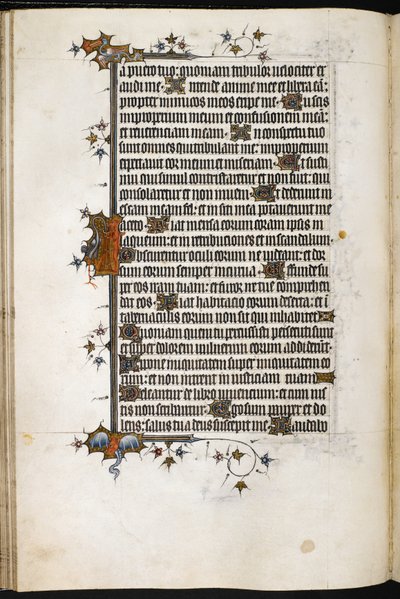 a puero tuo: quoniam tribulor uelociter ex
audi me. Intende anime mee et libera eā:
propter inimicos meos eripe me. Tu scis
improperium meum et confusionem meā:
et reuerenciam meam. In conspectu tuo
sunt omnes qui tribulant me: improperium
expectauit cor meum et miseriam. Et susti
nui qui simul contristaretur et non fuit: qui
consolaretur et non inueni. Et dederunt in
escam meam fel: et in siti mea potauerunt me
aceto. Fiat mensa eorum coram ipsis in
laqueum: et in retribuciones et scandalum.
Obscurentur oculi eorum ne uideant: et dor
sum eorum semper incurua. Effunde su
per eos iram tuam: et furor ire tue comprehen
dat eos. Fiat habitacio eorum deserta: et i
tabernaculis eorum non sit qui inhabitet
Quoniam quem tu percussisti persecuti sunt
et super dolorem uulnerum eorum addiderūt.
Appone iniquitatem super iniquitatem eo
rum: et non intrent in iusticiam tuam.
Deleantur de libro uiuencium: et cum ius
tis non scribantur. Ego sum pauper et do
lens: salus tua deus suscepit me. Laudabo